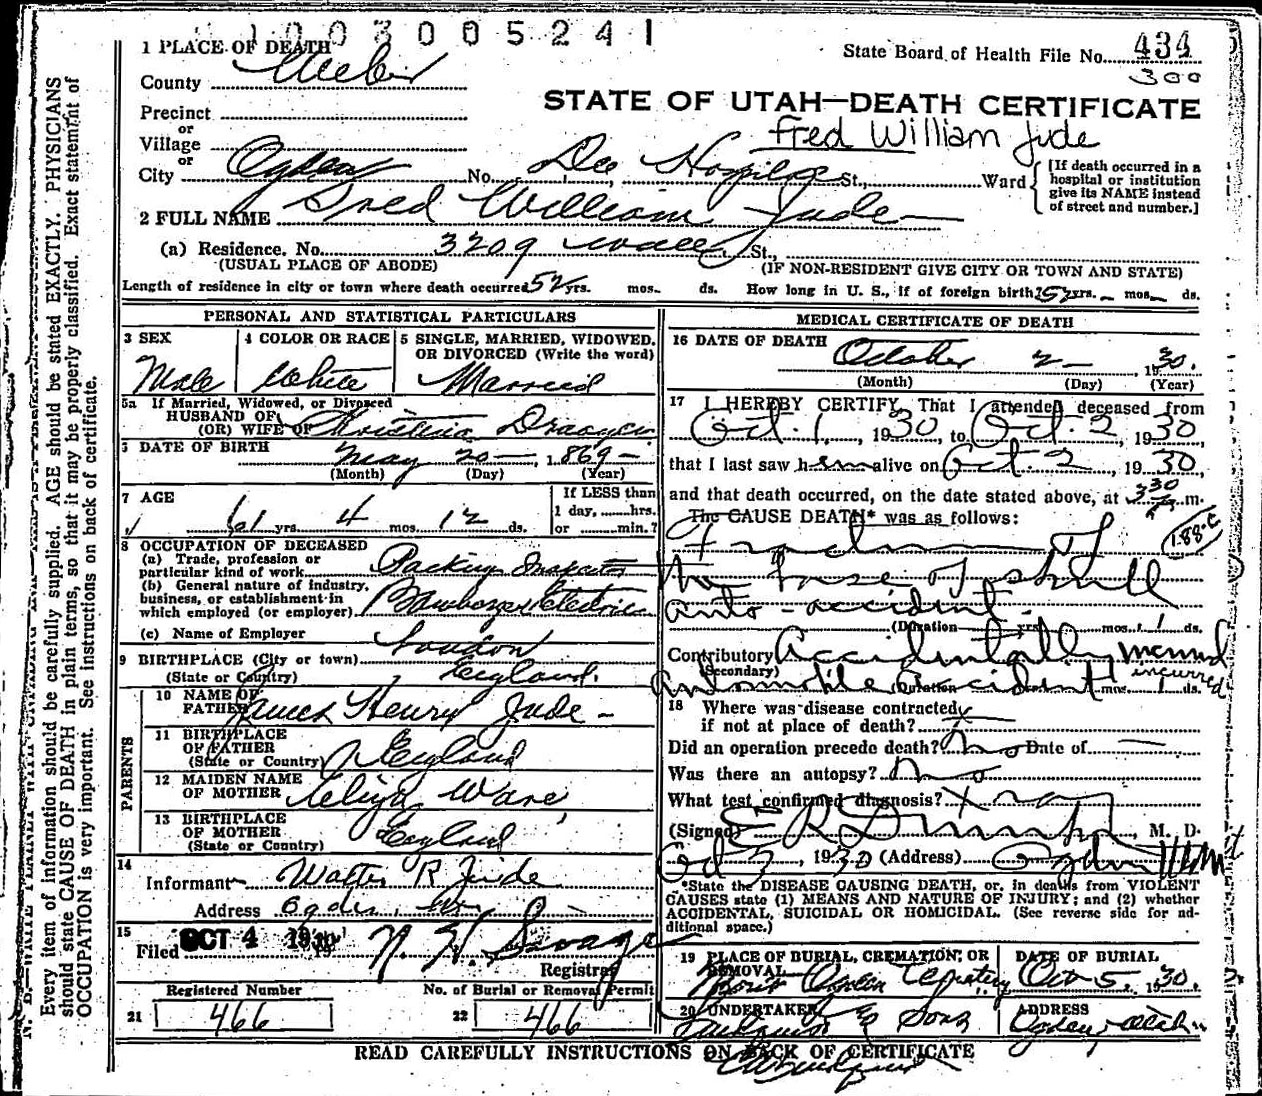 1003005241
State Board of Health File No. 434
300
1 PLACE OF DEATH
County Weber
STATE OF UTAH—DEATH CERTIFICATE
Precinct
or
Fred William Jude
Village
or
City Ogden No. Dee Hospital St., Ward
[If death occurred in a hospital or institution give its NAME instead of street and number.]
2 FULL NAME Fred William Jude
(a) Residence. No. 3209 Wall St.,
(USUAL PLACE OF ABODE) (IF NON-RESIDENT GIVE CITY OR TOWN AND STATE)
Length of residence in city or town where death occurred 52 yrs. mos. ds. How long in U. S., if of foreign birth? 52 yrs. mos. ds.
PERSONAL AND STATISTICAL PARTICULARS
3 SEX
Male
4 COLOR OR RACE
White
5 SINGLE, MARRIED, WIDOWED,
OR DIVORCED (Write the word)
Married
5a If Married, Widowed, or Divorced
HUSBAND OF
(OR) WIFE OF Christina Draayer
6 DATE OF BIRTH May 20 — , 1869 —
(Month) (Day) (Year)
7 AGE
61 yrs. 4 mos. 12 ds.
If LESS than
1 day, hrs.
or min.?
8 OCCUPATION OF DECEASED
(a) Trade, profession or
particular kind of work Packing Inspector
(b) General nature of industry,
business, or establishment in
which employed (or employer) Bamberger Electric
(c) Name of Employer
9 BIRTHPLACE (City or town) London
(State or Country) England.
PARENTS
10 NAME OF
FATHER James Henry Jude —
11 BIRTHPLACE
OF FATHER
(State or Country) England
12 MAIDEN NAME
OF MOTHER Eliza Ware
13 BIRTHPLACE
OF MOTHER
(State or Country) England
14
Informant Walter R Jude
Address Ogden,
15
Filed OCT 4 1930 N. H. Savage
Registrar
Registered Number
21 466
No. of Burial or Removal Permit
22 466
MEDICAL CERTIFICATE OF DEATH
16 DATE OF DEATH
October 2 — , 1930.
(Month) (Day) (Year)
17 I HEREBY CERTIFY, That I attended deceased from
Oct. 1, 1930, to Oct. 2, 1930
that I last saw him alive on Oct. 2, 1930
and that death occurred, on the date stated above, at 3 30 m.
The CAUSE DEATH* was as follows:
188-c
Fracture of
the base of skull
auto-accident.
(Duration yrs. mos. 1 ds.
Contributory Accidentally
(Secondary)
incurred
Automobile accident
(Duration mos. 1 ds.
18 Where was disease contracted
if not at place of death?
Did an operation precede death? No Date of —
Was there an autopsy? No
What test confirmed diagnosis? X ray
(Signed) E R Dumke, M. D.
Oct 3, 1930 (Address) Ogden Utah
*State the DISEASE CAUSING DEATH, or, in deaths from VIOLENT
CAUSES state (1) MEANS AND NATURE OF INJURY; and (2) whether
ACCIDENTAL, SUICIDAL OR HOMICIDAL. (See reverse side for ad-
ditional space.)
19 PLACE OF BURIAL, CREMATION, OR
REMOVAL
Ogden Cemetery
DATE OF BURIAL
Oct 5, 1930.
20 UNDERTAKER
Lindquist & Sons
ADDRESS
Ogden, Utah
READ CAREFULLY INSTRUCTIONS ON BACK OF CERTIFICATE
Every item of information should be carefully supplied. AGE should be stated EXACTLY. PHYSICIANS
should state CAUSE OF DEATH in plain terms, so that it may be properly classified. Exact statement of
OCCUPATION is very important. See instructions on back of certificate.